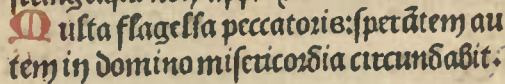 Multa flagella peccatoris: sperãtem au
tem in domino misericordia circundabit.